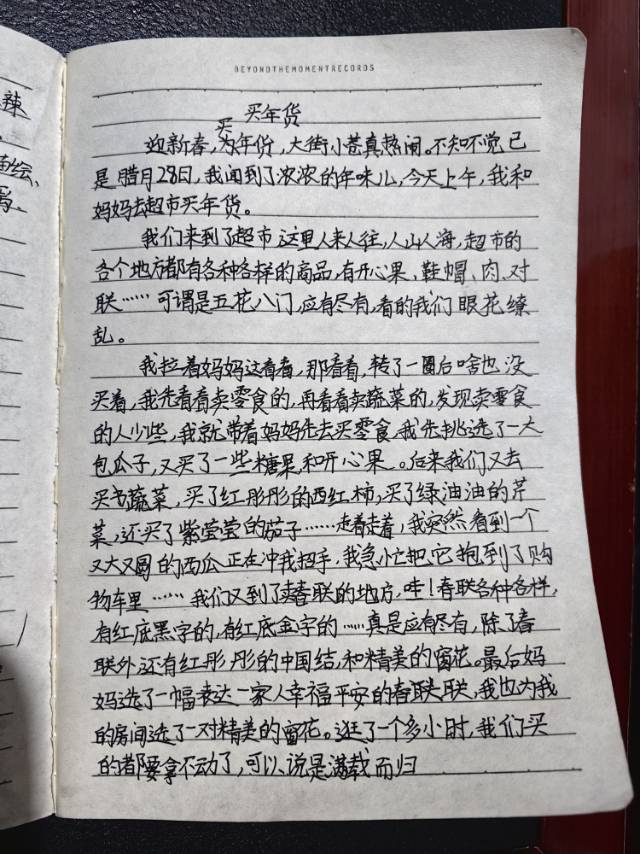 BEYONDTHEMOMENTRECORDS
买年货
迎新春,买为年货,大街小巷真热闹。不知不觉已
是腊月28日,我闻到了浓浓的年味儿,今天上午,我和
妈妈去超市买年货。
我们来到了超市这里人来人往,人山人海,超市的
各个地方都有各种各样的商品,有开心果、鞋帽、肉、对
联……可谓是五花八门,应有尽有,看的我们眼花缭
乱。
我拉着妈妈这看看,那看看,转了一圈后啥也没
买着,我先看看卖零食的,再看看卖蔬菜的,发现卖零食
的人少些,我就带着妈妈先去买零食,我先挑选了一大
包瓜子,又买了一些糖果和开心果。后来我们又去
买蔬菜,买了红彤彤的西红柿,买了绿油油的芹
菜,还买了紫莹莹的茄子……走着走着,我突然看到一个
又大又圆的西瓜正在冲我招手,我急忙把它抱到了购
物车里……我们又到了卖春联的地方,哇!春联各种各样,
有红底黑字的,有红底金字的……真是应有尽有,除了春
联外还有红彤彤的中国结,和精美的窗花。最后妈
妈选了一幅表达一家人幸福平安的春联联,我也为我
的房间选了一对精美的窗花。逛了一个多小时,我们买
的都要拿不动了,可以说是满载而归
辣
绘、